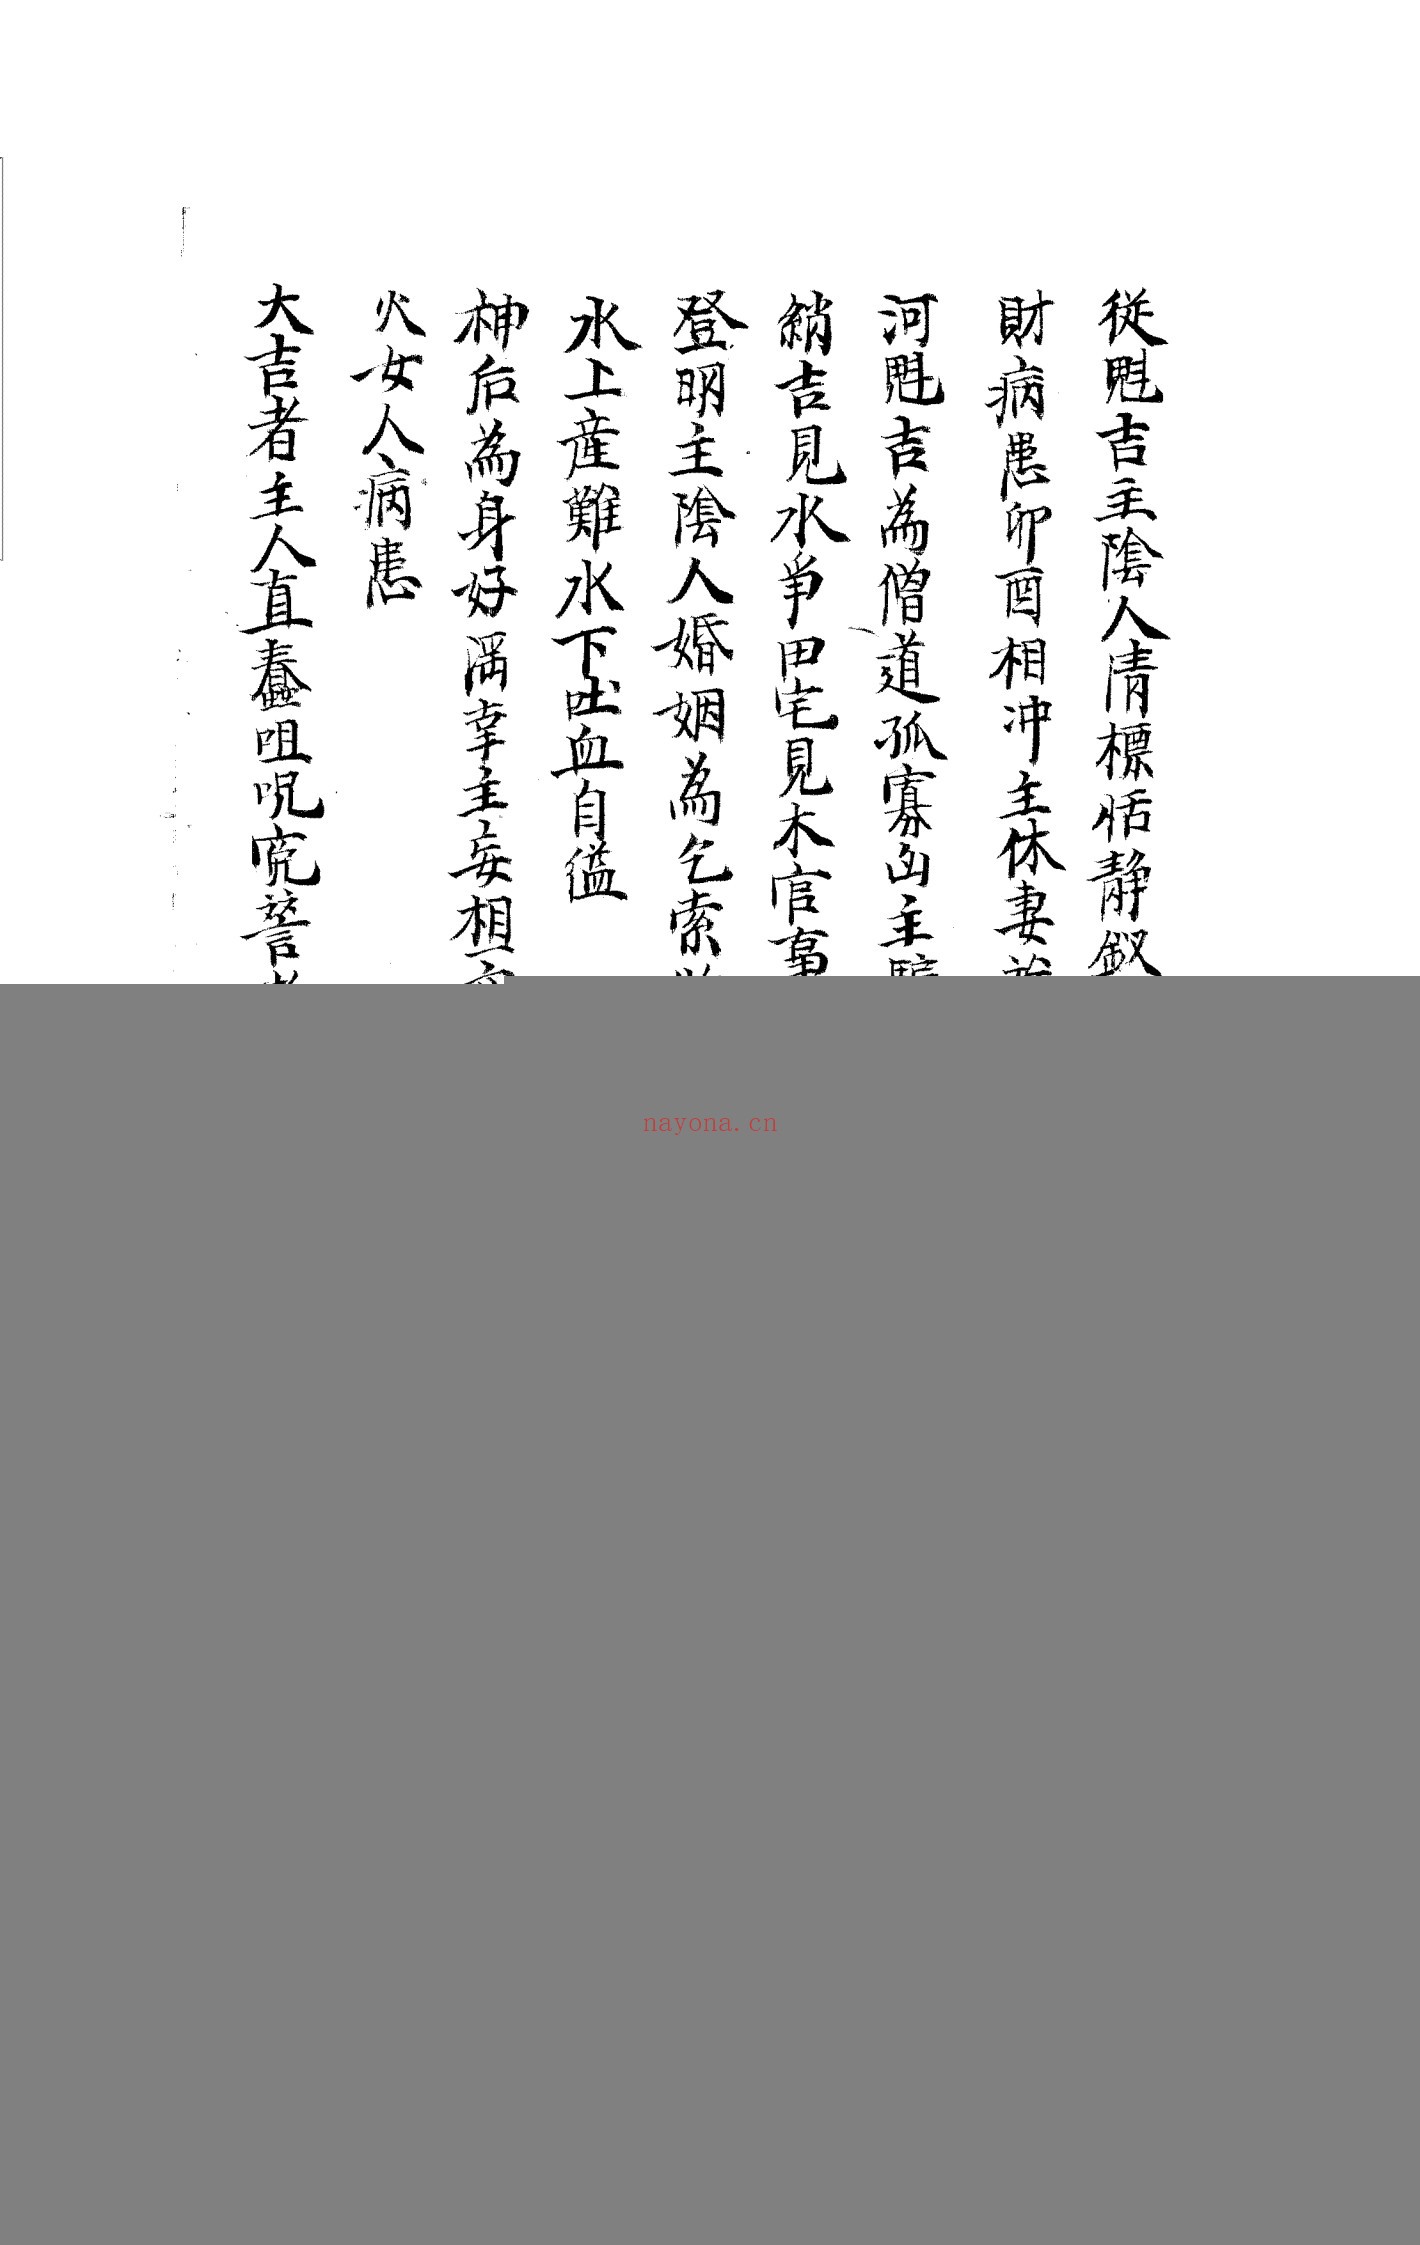 從魁吉主陰人清標恬静釵
財病患卯酉相冲主休妻
河魁吉為僧道孤寡凶主
綃吉見水爭田宅見木官事
登明主陰人婚姻為乞索
水上産難水下吐血自縊
神后為身好滛幸主妄想
火女人病患
大吉者主人直蠢咀呪寃讐
nayona.cn